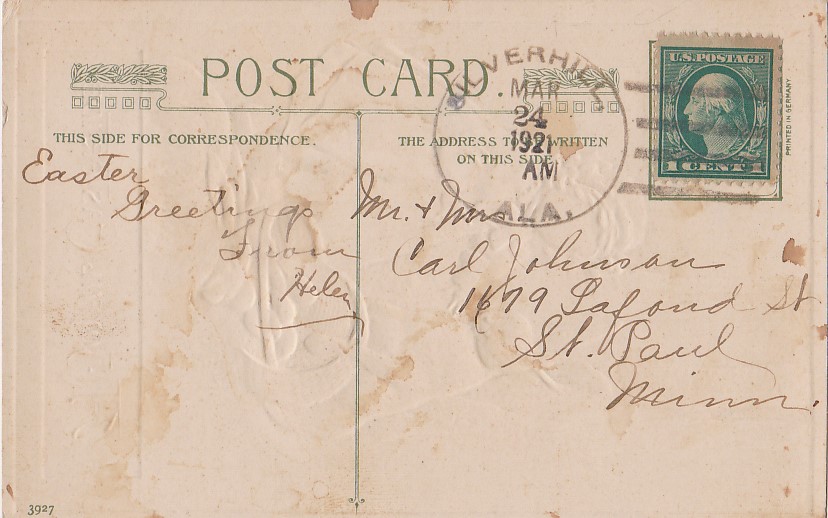 POST CARD.
THIS SIDE FOR CORRESPONDENCE.
THE ADDRESS TO BE WRITTEN
ON THIS SIDE
SILVERHILL
MAR
24
1921
AM
ALA.
U.S. POSTAGE
1 CENT 1
PRINTED IN GERMANY
Easter
Greetings
From
Helen
Mr. + Mrs
Carl Johnson
1679 Lafond St
St. Paul
Minn.
3927